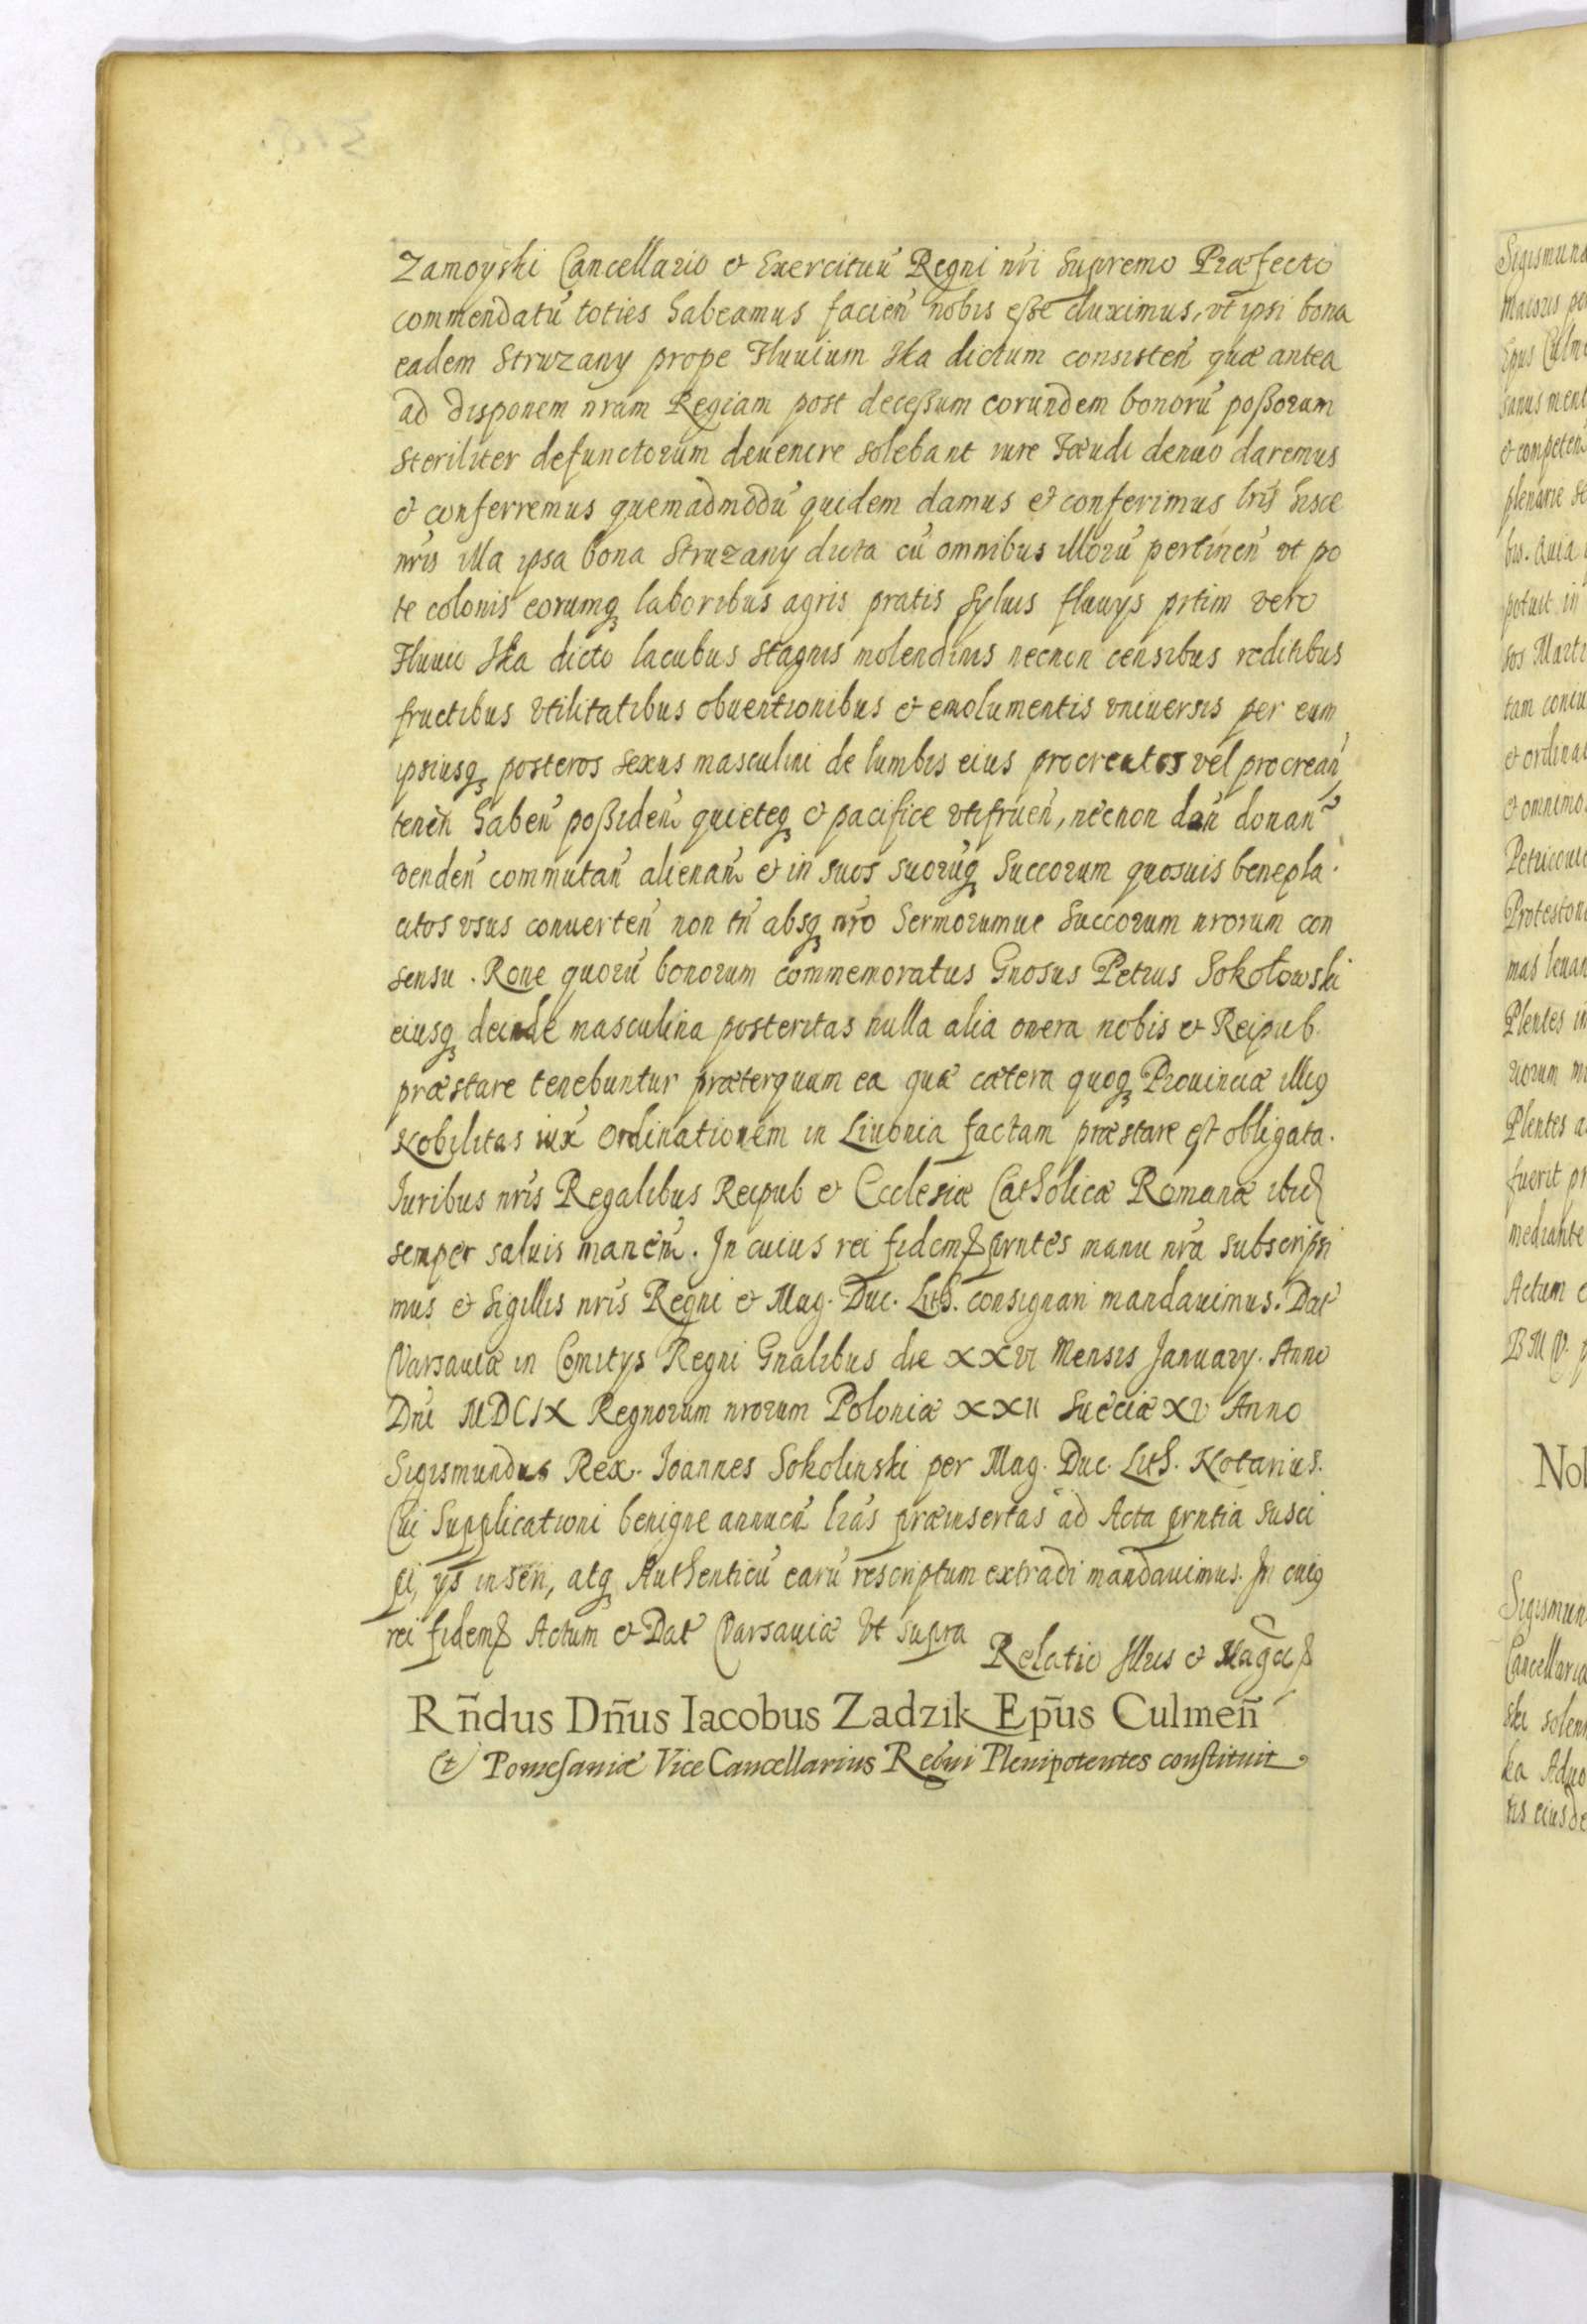 Zamoyski Cancellario et Exercituū Regni nr̄i Supremo Præfecto
commendatū toties habeamus facien̄ nobis eße duximus, vt ipsi bona
eadem Struzany prope Fluuium Ika dictum consisten̄ quæ antea
ad disponem nram Regiam post deceßum eorundem bonorū poßorum
steriliter defunctorum deuenire solebant iure Fœudi denuo daremus
et conferremus quemadmodū quidem damus et conferimus lrīs hisce
nrīs illa ipsa bona Struzany dicta cū omnibus illorū pertinen̄ vt po
te colonis eorumq₃ laboribus agris pratis syluis fluuys prtim vero
Fluuio Ika dicto lacubus stagnis molendinis necnon censibus reditibus
fructibus vtilitatibus obuentionibus et emolumentis vniuersis per eum
ipsiusq₃ posteros sexus masculini de lumbis eius procreatos vel procrean̄
tenen̄ haben̄ poßiden̄ quieteq₃ et pacifice vtifruen̄, necnon dan̄ donan̄
venden̄ commutan̄ alienan̄ et in suos suorūq₃ succorum quosuis benepla
citos vsus conuerten̄ non tn̄ absq₃ nrō Sermorumue Succorum nrorum con
sensu. Rone quorū bonorum commemoratus Gnosus Petrus Sokołowski
eiusq₃ deinde masculina posteritas nulla alia onera nobis et Reipub.
præstare tenebuntur præterquam ea quæ cætera quoq₃ Prouinciæ illi9
Nobilitas iux̄ Ordinationem in Liuonia factam præstare est obligata.
Iuribus nrīs Regalibus Reipub et Ecclesiæ Catholicæ Romanæ ibid
semper saluis manen̄. In cuius rei fidemꝫ prntes manu nrā subscripsi
mus et Sigillis nrīs Regni et Mag. Duc. Lith. consignari mandauimus. Dat
Varsauiæ in Comitys Regni Gnalibus die XXVI Mensis January. Anno
Dni MDCIX Regnorum nrorum Poloniæ XXII Sueciæ XV Anno
Sigismundus Rex. Ioannes Sokolinski per Mag. Duc. Lith. Notarius.
Cui Supplicationi benigne annuen̄ lrās præinsertas ad Acta prntia susci
pi, ys inseri, atq₃ Authenticū earū rescriptum extradi mandauimus. In cui9
rei fidemꝫ Actum et Dat Varsauiæ Vt supra
Relatio Illris et Magci
Rñdus Dñus Iacobus Zadzik Ep̄us Culmeñ
et Pomesaniæ Vice Cancellarius Regni Plenipotentes constituit